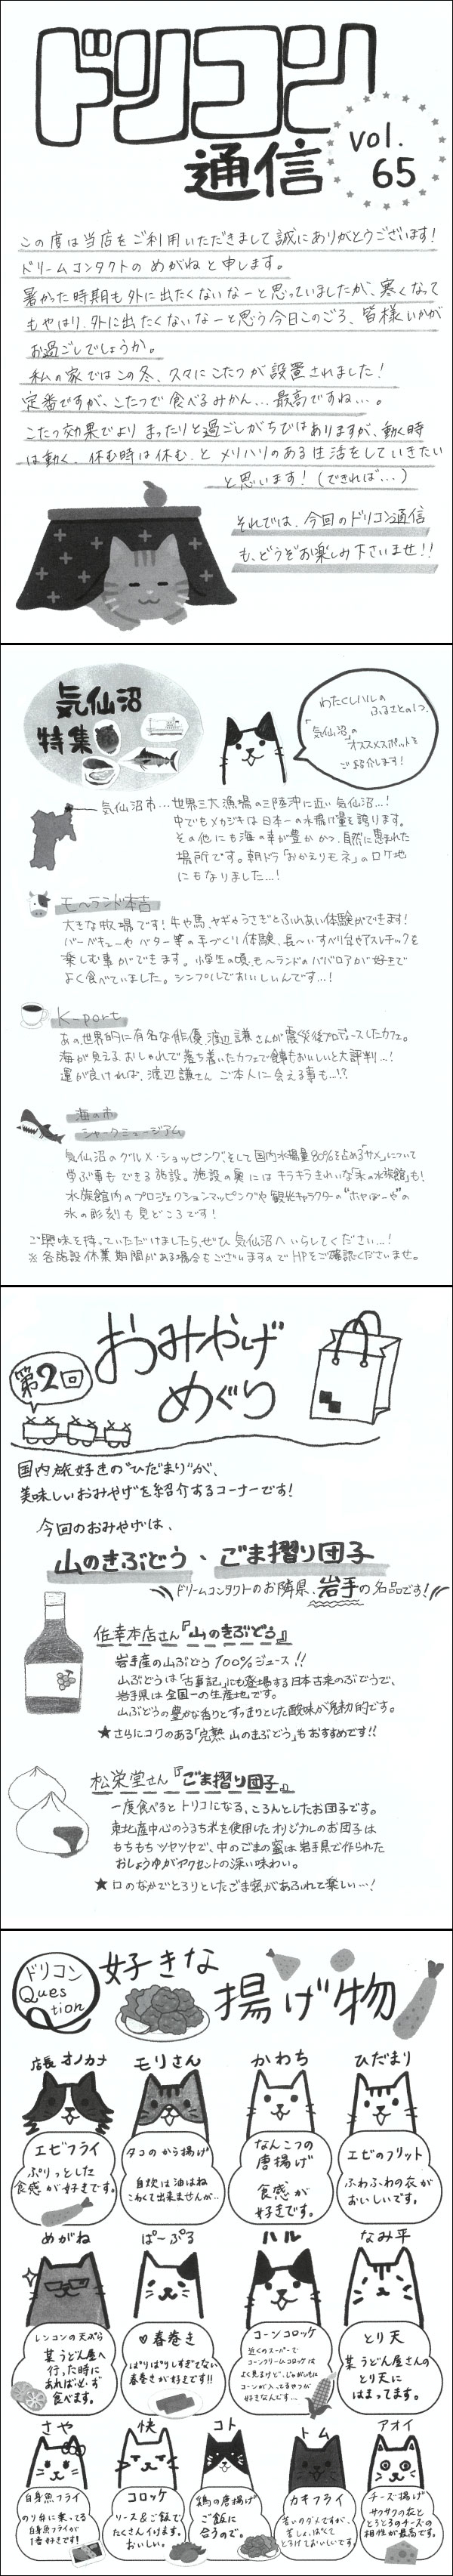 ドリコン
通信
vol.
65
この度は当店をご利用いただきまして誠にありがとうございます!
ドリームコンタクトの めがねと申します。
暑かった時期も外に出たくないなーと思っていましたが、寒くなって
もやはり、外に出たくないなーと思う今日このごろ、皆様いかが
お過ごしでしょうか。
私の家ではこの冬、久々にこたつが設置されました!
定番ですが、こたつで食べるみかん…最高ですね…。
こたつ効果でよりまったりと過ごしがちではありますが、動く時
は動く、休む時は休む、とメリハリのある生活をしていきたい
と思います!(できれば…)
それでは、今回のドリコン通信
も、どうぞお楽しみ下さいませ!!
気仙沼
特集
わたくしハルの
ふるさとの1つ、
「気仙沼」の
オススメスポットを
ご紹介します!
気仙沼市…世界三大漁場の三陸沖に近い気仙沼…!
中でもメカジキは日本一の水揚げ量を誇ります。
その他にも海の幸が豊かかつ、自然に恵まれた
場所です。朝ドラ「おかえりモネ」のロケ地
にもなりました…!
モーランド本吉
大きな牧場です!牛や馬、ヤギやうさぎとふれあい体験ができます!
バーベキューやバター等の手づくり体験、長〜いすべり台やアスレチックを
楽しむ事ができます。小学生の頃、モーランドのババロアが好きで
よく食べていました。シンプルでおいしいんです…!
K-port
あの世界的に有名な俳優、渡辺謙さんが震災後プロデュースしたカフェ。
海が見える、おしゃれで落ち着いたカフェで食事もおいしいと大評判…!
運が良ければ、渡辺謙さんご本人に会える事も…!?
海の市
シャークミュージアム
気仙沼のグルメ・ショッピング、そして国内水揚量90%を占める「サメ」について
学ぶ事もできる施設。施設の奥にはキラキラきれいな「氷の水族館」も!
水族館内のプロジェクションマッピングや観光キャラクターの"ホヤぼーや"の
氷の彫刻も見どころです!
ご興味を持っていただけましたら、ぜひ気仙沼へいらしてください…!
※各施設休業期間がある場合もございますのでHPをご確認くださいませ。
第2回
おみやげ
めぐり
国内旅好きの"ひだまり"が、
美味しいおみやげを紹介するコーナーです!
今回のおみやげは、
山のきぶどう・ごま摺り団子
ドリームコンタクトのお隣県、岩手の名品です!
佐幸本店さん『山のきぶどう』
岩手産の山ぶどう100%ジュース!!
山ぶどうは「古事記」にも登場する日本古来のぶどうで、
岩手県は全国一の生産地です。
山ぶどうの豊かな香りとすっきりとした酸味が魅力的です。
★さらにコクのある「完熟 山のきぶどう」もおすすめです!!
松栄堂さん『ごま摺り団子』
一度食べるとトリコになる、ころんとしたお団子です。
東北産中心のうるち米を使用したオリジナルのお団子は
もちもちツヤツヤで、中のごまの蜜は岩手県で作られた
おしょうゆがアクセントの深い味わい。
★口のなかでとろりとしたごま蜜があふれて楽しい…!
ドリコン
Ques
tion
好きな
揚げ物
店長 オノカナ
モリさん
かわち
ひだまり
エビフライ
ぷりっとした
食感が好きです。
タコのから揚げ
自炊は油はね
こわくて出来ませんが…
なんこつの
唐揚げ
食感が
好きです。
エビのフリット
ふわふわの衣が
おいしいです。
めがね
ぱーぷる
ハル
なみ平
レンコンの天ぷら
某うどん屋へ
行った時に
あれば必ず
食べます。
♡春巻き
ぱりぱりしすぎてない
春巻きが好きです!!
コーンコロッケ
近くのスーパーで
コーンクリームコロッケは
よく見るけど、じゃがいもに
コーンが入ってるやつが
好きなんです…
とり天
某うどん屋さんの
とり天に
はまってます。
さや
快
コト
トム
アオイ
白身魚フライ
のり弁に乗ってる
白身魚フライが
1番好きです!
コロッケ
ソース&ご飯で
たくさん行けます。
おいしい。
鶏の唐揚げ
ご飯に
合うので。
カキフライ
とろけておいしいです。
チーズ揚げ
サクサクの衣と
とろとろのチーズの
相性が最高です。